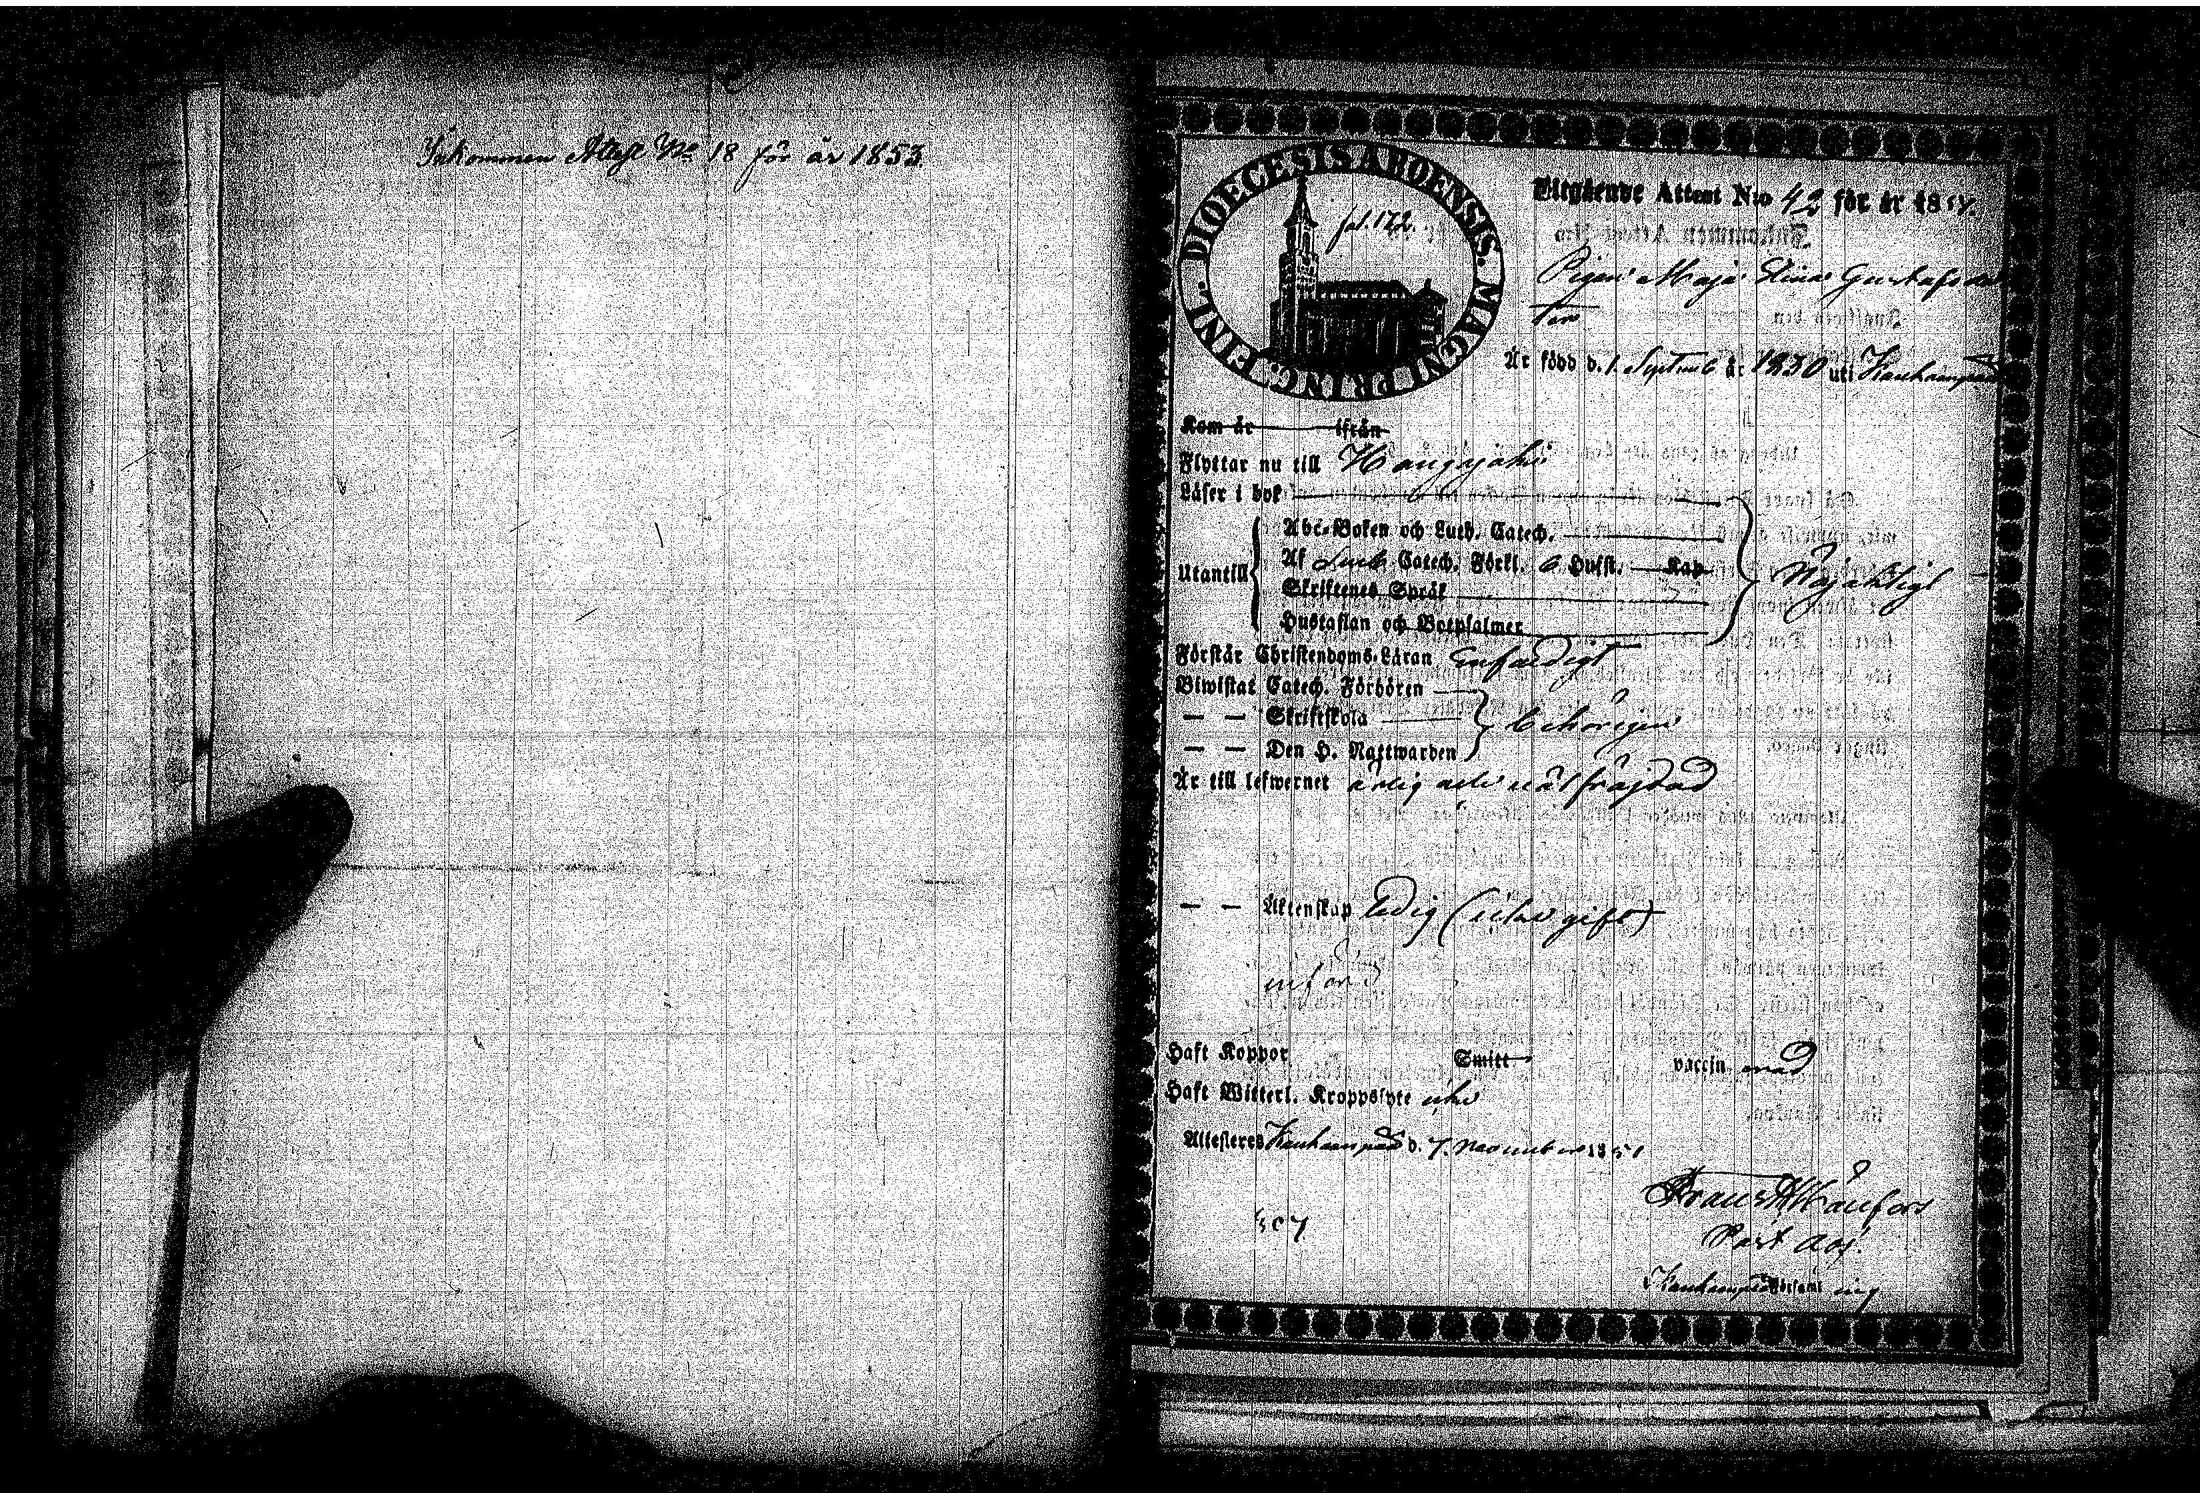 Inkommen Attest No 18 för år 1853
DIOECESIS ABOENSIS. MAGNI PRINC. FINL.
fol. 172.
Utgående Attest N:o 42 för år 1851.
Pigan Maja Stina Gustafsdot
ter
Är född d. 1 Septemb år 1830 uti Kauhampää
Kom år ifrån
Flyttar nu till Hausjärvi
Läser i bok
Abc-Boken och Luth. Catech.
Utantill
Af Catech. Förkl. 6 Hufst. Kap
Skriftenes Språk
Hustaflan och Botpsalmer
Nöjaktigt
Förstår Christendoms-Läran Enfaldigt
Biwistat Catech. Förhören
— — Skriftskola
behörigen
— — Den H. Nattwarden
Är till lefwernet ärlig och välfräjdad
— — Äktenskap ledig (icke gift)
införd
Haft Koppor Smitt vaccinerad
Haft Witterl. Kroppslyte icke
Attesteras d. 7. November 1851
Frans
Past adj.
Församling